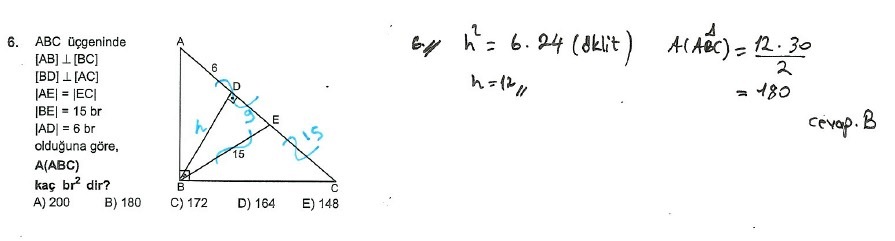 6. ABC üçgeninde
[AB] ⊥ [BC]
[BD] ⊥ [AC]
|AE| = |EC|
|BE| = 15 br
|AD| = 6 br
olduğuna göre,
A(ABC)
kaç br² dir?
A) 200 B) 180 C) 172 D) 164 E) 148
A
6
D
9
E
h
15
15
B
C
6// h² = 6.24 (öklit)
h = 12//
A(ABC) = 12.30
2
= 180
cevap.B